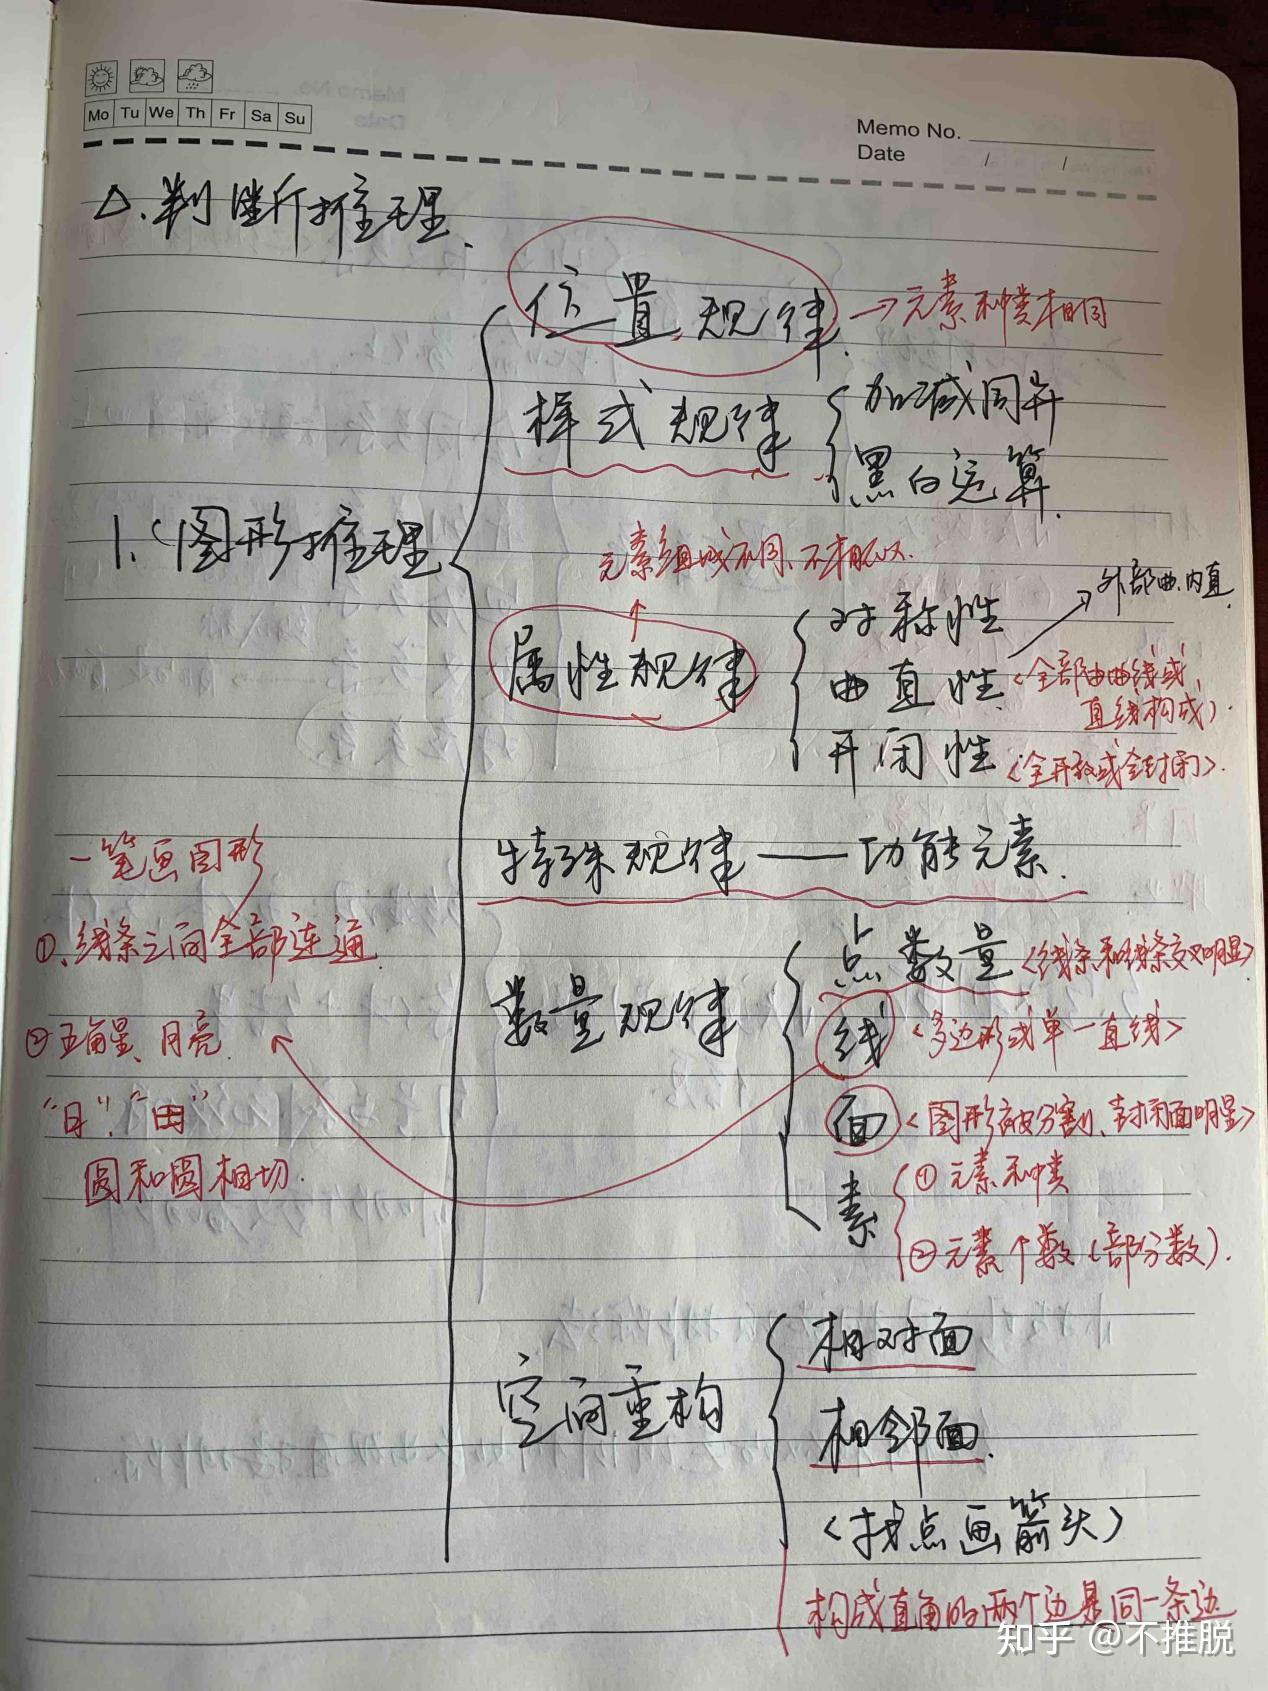 Mo Tu We Th Fr Sa Su
Memo No.
Date / /
△.判断推理.
1.图形推理
位置规律. →元素种类相同
样式规律
加减同异
黑白运算.
元素组成不同、不相似.
属性规律
对称性
外部曲.内直.
曲直性 <全部由曲线或、
直线构成>.
开闭性 <全开放或全封闭>.
特殊规律——功能元素.
数量规律
点数量 <线条和线条交叉明显>
线 <多边形或单一直线>
面 <图形被分割、封闭面明显>
素
①元素种类
②元素个数(部分数).
一笔画图形
①、线条之间全部连通.
②五角星、月亮.
“日”、“田”
圆和圆相切.
空间重构
相对面
相邻面.
<找点画箭头>
构成直角的两个边是同一条边
知乎 @不推脱